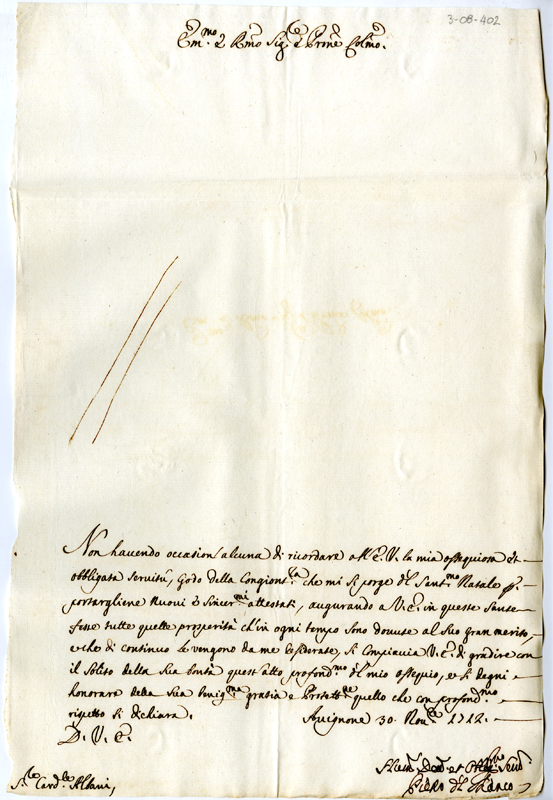 3-08-402
Em.mo e Rmo Sig.re e Prone Colmo.
Non havendo occasion alcuna di ricordare all'E.V. la mia ossequiosa et
obbligata servitù, Godo della Congiont.ra che mi si porge del Sant.mo Natale p.
portargliene nuovi e sincer.mi attestati, augurando a V.E. in queste Sante
feste tutte quelle prosperità ch'in ogni tempo sono dovute al suo gran merito,
e che di continuo le vengono da me desiderate, Si Compiaccia V.E. di gradire con
il Solito della Sua bontà quest'atto profond.mo del mio ossequio, e si degni
honorare della Sua benig.ma gratia e Protett.ne quello che con profond.mo
rispetto si dichiara. Avignone 30. Nov.re 1712.
D. V. E.
S.re Card.le Albani,
Humil.mo Devot.mo et Serv.
Piero del Bianco